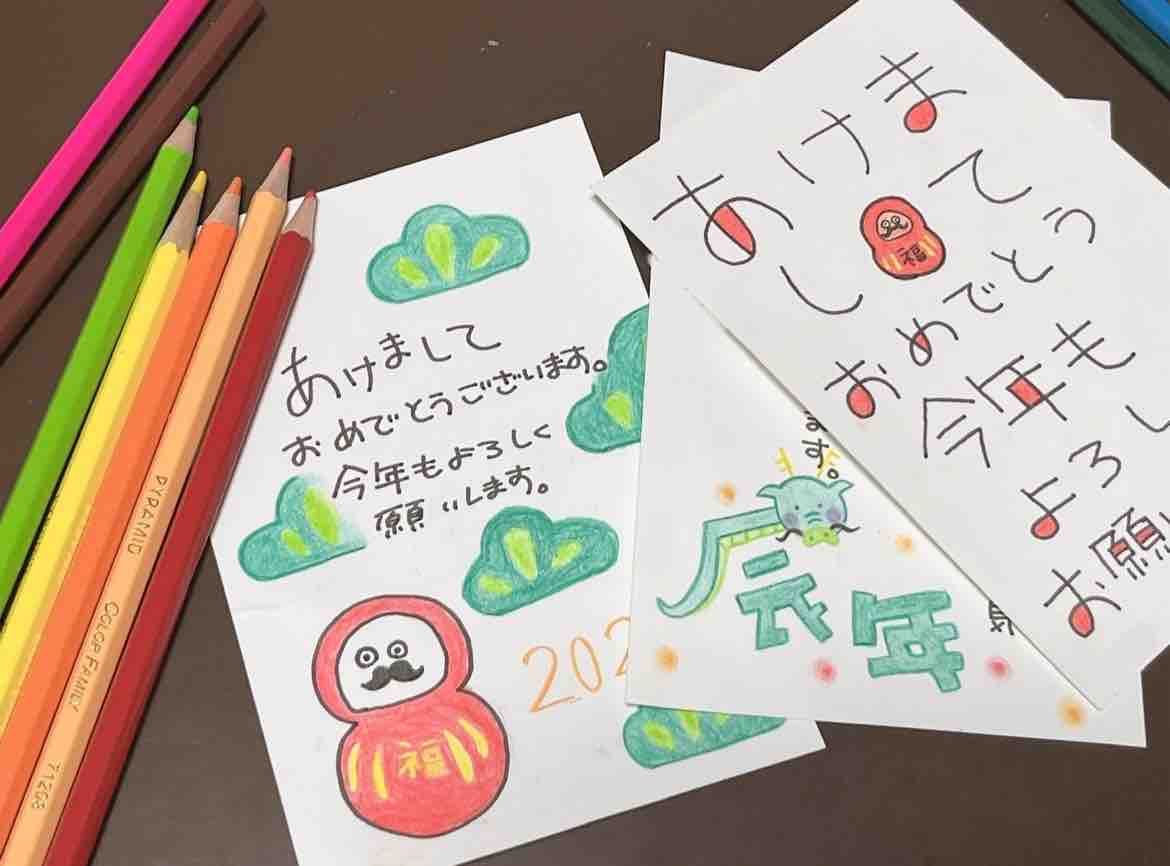 あけまして
おめでとうございます。
今年もよろしく
願いします。
福
202
ます。
辰年
あけま
して
福
おめでとう
今年も
よろし
お願
PYRAMID COLOR FAMILY 71268